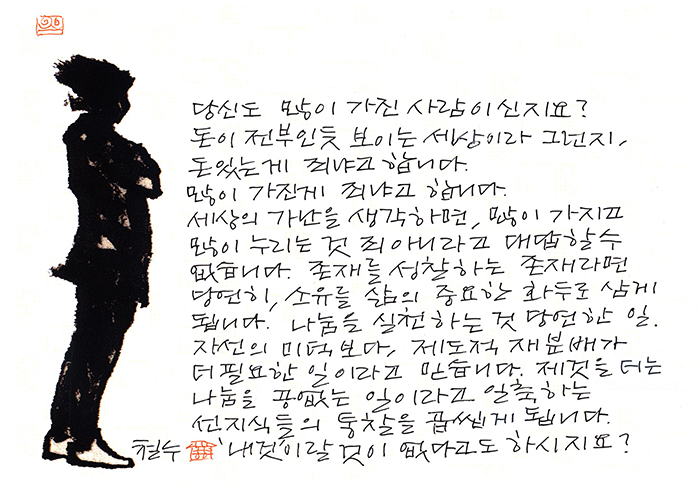 당신도 많이 가진 사람이신지요?
돈이 전부인듯 보이는 세상이라 그런지,
돈있는게 죄냐고 합니다.
많이 가진게 죄냐고 합니다.
세상의 가난을 생각하면, 많이 가지고
많이 누리는 것 죄 아니라고 대답할수
없습니다. 존재를 성찰하는 존재라면
당연히, 소유를 삶의 중요한 화두로 삼게
됩니다. 나눔을 실천하는 것 당연한 일.
자선의 미덕보다, 제도적 재분배가
더 필요한 일이라고 믿습니다. 제것을 더는
나눔을 공없는 일이라고 일축하는
선지식들의 통찰을 곱씹게 됩니다.
철수 '내것'이랄 것이 없다고도 하시지요?